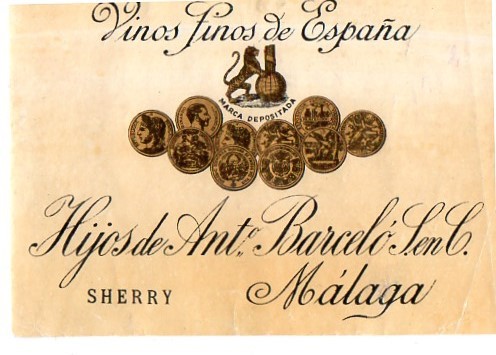 Vinos Finos de España
MARCA DEPOSITADA
Hijos de Ant.º Barceló S.en C.
SHERRY
Málaga